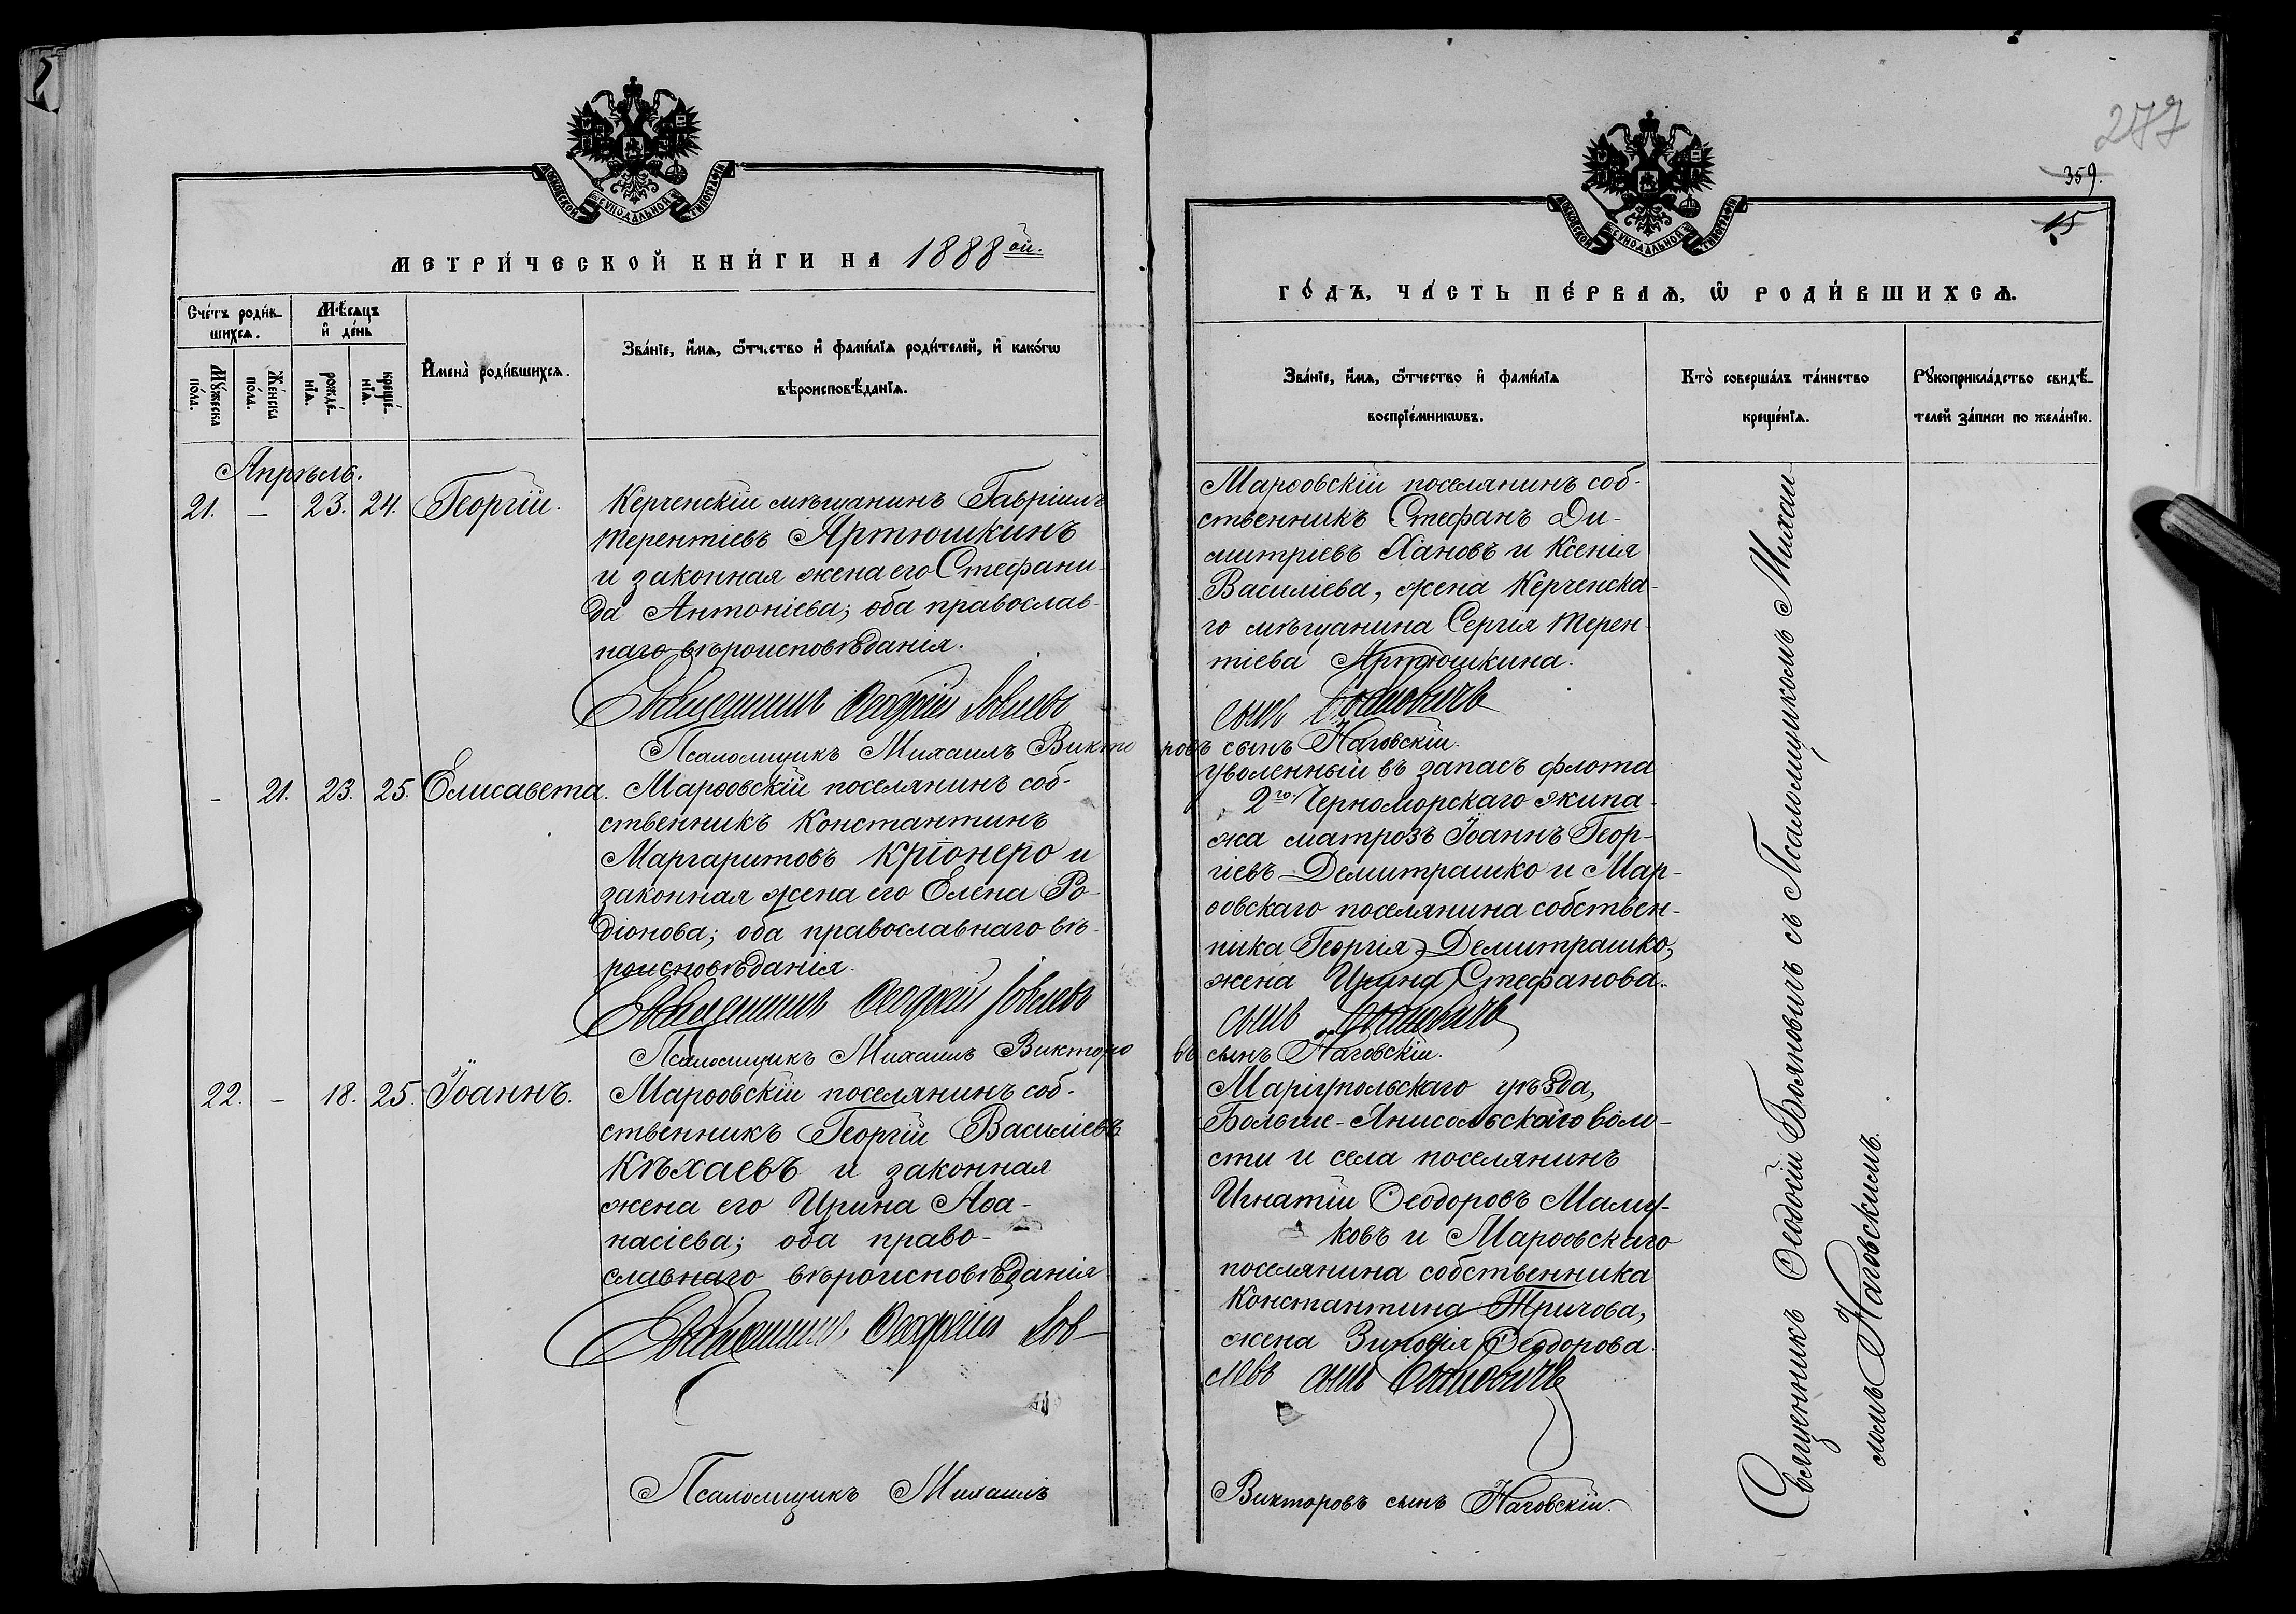 МОСКОВСКОЙ СѴНОДАЛЬНОЙ ТИПОГРАФІИ
МЕТРИ́ЧЕСКОЙ КНИ́ГИ НА 1888ой.
Сче́тъ роди́в-
шихсѧ.
Мѣ́сѧцъ
и҆ де́нь
Мꙋ́жеска
по́ла.
Же́нска
по́ла.
рожде́-
нїѧ.
креще́-
нїѧ.
И҆мена̀ роди́вшихсѧ.
Зва́нїе, и҆́мѧ, ѻ҆́тчество и҆ фами́лїѧ роди́телей, и҆ како́гѡ
вѣроисповѣ́данїѧ.
Апрѣль.
21. — 23. 24. Георгій.
Керченскій мѣщанинъ Гавріилъ
Терентіевъ Артюшкинъ
и законная жена его Стефани-
да Антоніева; оба православ-
наго вѣроисповѣданія.
Священникъ Ѳеодосій Іовлевъ
Псаломщикъ Михаилъ Викто
- 21. 23. 25. Елисавета.
Марѳовскій поселянинъ соб-
ственникъ Константинъ
Маргаритовъ Кріонеро и
законная жена его Елена Ро-
діонова; оба православнаго вѣ-
роисповѣданія.
Священникъ Ѳеодосій Іовлевъ
Псаломщикъ Михаилъ Викторо
22. — 18. 25. Іоаннъ.
Марѳовскій поселянинъ соб-
ственникъ Георгій Василіевъ
Кѣхаевъ и законная
жена его Ирина Аѳа-
насіева; оба право-
славнаго вѣроисповѣданія.
Священникъ Ѳеодосій Іов-
Псаломщикъ Михаилъ
277
359.
15
МОСКОВСКОЙ СѴНОДАЛЬНОЙ ТИПОГРАФІИ
ГО́ДЪ, ЧА́СТЬ ПЕ́РВАѦ, Ѡ҆ РОДИ́ВШИХСѦ.
Зва́нїе, и҆́мѧ, ѻ҆́тчество и҆ фами́лїѧ
воспрїе́мникѡвъ.
Кто̀ соверша́лъ та́инство
креще́нїѧ.
Рꙋкоприкла́дство свидѣ́-
телей за́писи по жела́нїю.
Марѳовскій поселянинъ соб-
ственникъ Стефанъ Ди-
митріевъ Хановъ и Ксенія
Василіева, жена Керченска-
го мѣщанина Сергія Терен-
тіева Артюшкина.
сынъ Бояновичъ
ровъ сынъ Наговскій.
Уволенный въ запасъ флота
2го Черноморскаго экипа-
жа матрозъ Іоаннъ Геор-
гіевъ Демитрашко и Мар-
ѳовскаго поселянина собствен-
ника Георгія Демитрашко,
жена Ирина Стефанова.
сынъ Бояновичъ
въ сынъ Наговскій.
Маріупольскаго уѣзда,
Больше-Анисольскаго воло-
сти и села поселянинъ
Игнатій Ѳеодоровъ Маму-
ковъ и Марѳовскаго
поселянина собственника
Константина Тричова,
жена Зиновія Ѳеодорова.
левъ сынъ Бояновичъ
Викторовъ сынъ Наговскій.
Священникъ Ѳеодосій Бояновичъ съ Псаломщикомъ Михаи-
ломъ Наговскимъ.